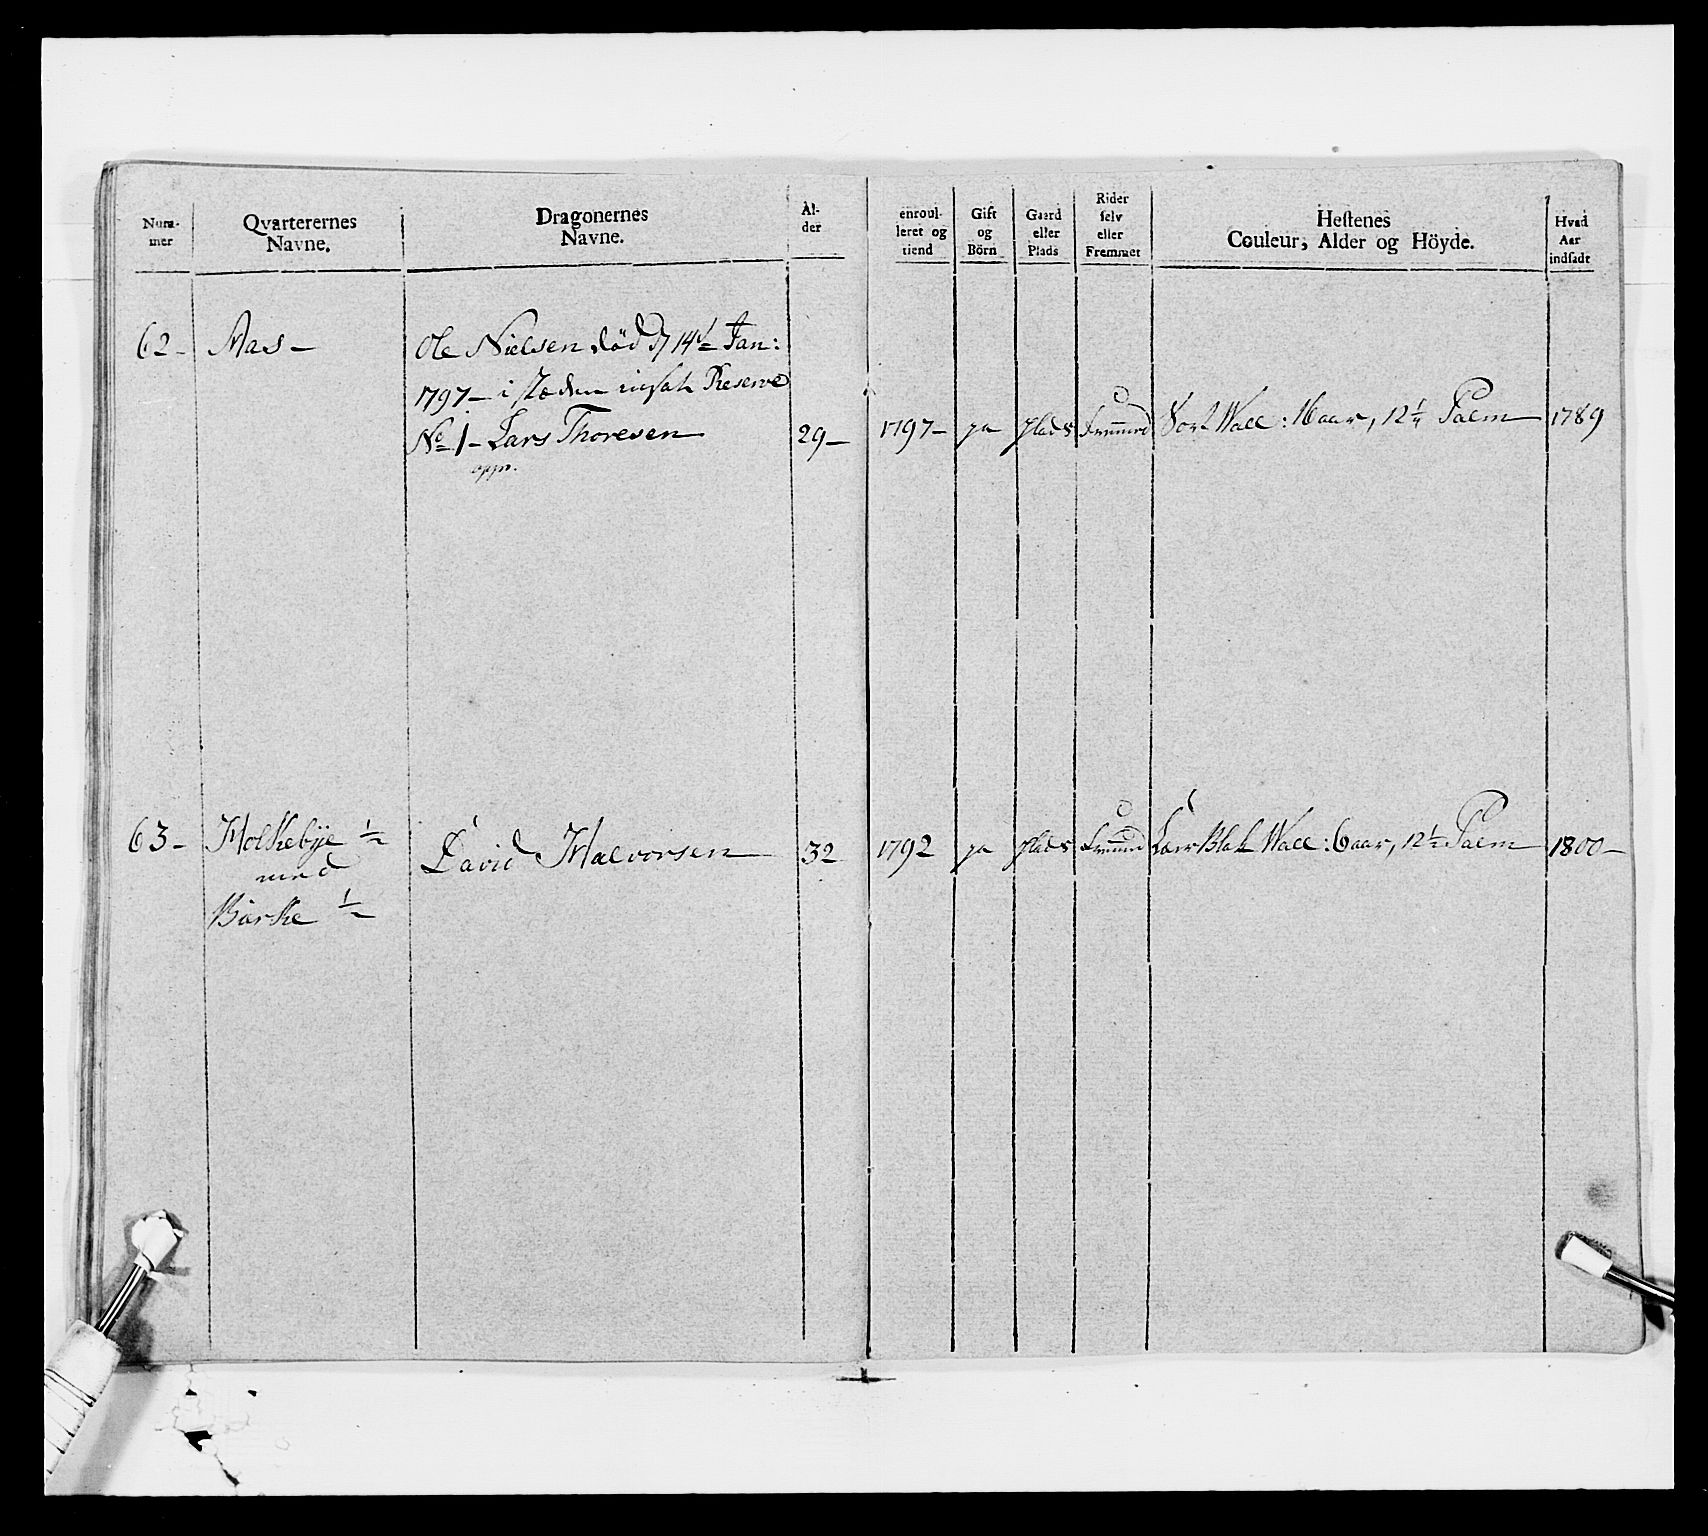 Num-
mer
Qvarterernes
Navne.
Dragonernes
Navne.
Al-
der
enroul-
leret og
tiend
Gift
og
Börn
Gaard
eller
Plads
Rider
selv
eller
Fremmet
Hestenes
Couleur, Alder og Höyde.
Hvad
Aar
indsadt
62- Aas- Ole Nielsen död d 14de Jan:
1797- i stæden insat Reserve
No 1- Lars Thoresen 29- 1797- ja plads fremmed Sort Wall: 16 aar, 12 1/4 Palm 1789
opp.
63- Holkebye 1/2 David Halvorsen 32 1792 ja plads fremmed Blak Wall: 6 aar, 12 1/2 Palm 1800-
med
Biørke 1/2